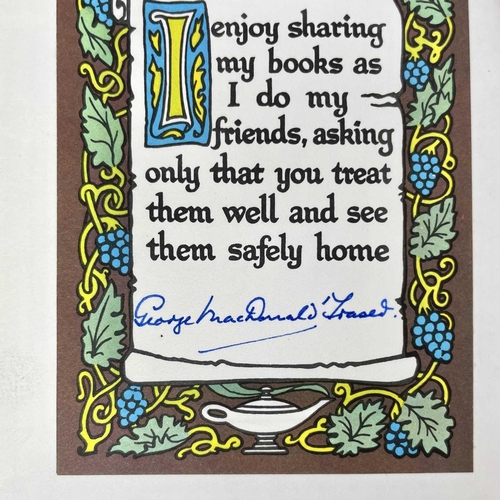 I enjoy sharing
my books as
I do my
friends, asking
only that you treat
them well and see
them safely home
George MacDonald Fraser.